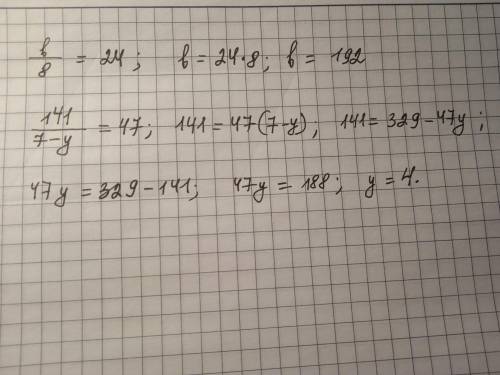 b/8 = 24; b = 24·8; b = 192
141/(7-y) = 47; 141 = 47(7-y); 141 = 329 - 47y;
47y = 329 - 141; 47y = 188; y = 4.